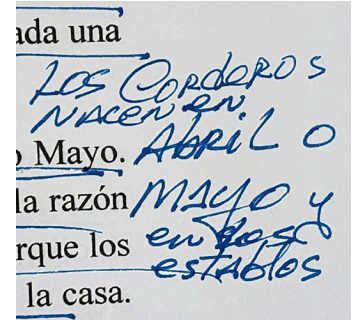 ada una
Los Corderos
nacen en
o Mayo. Abril o
la razón Mayo y
rque los en los
establos
la casa.